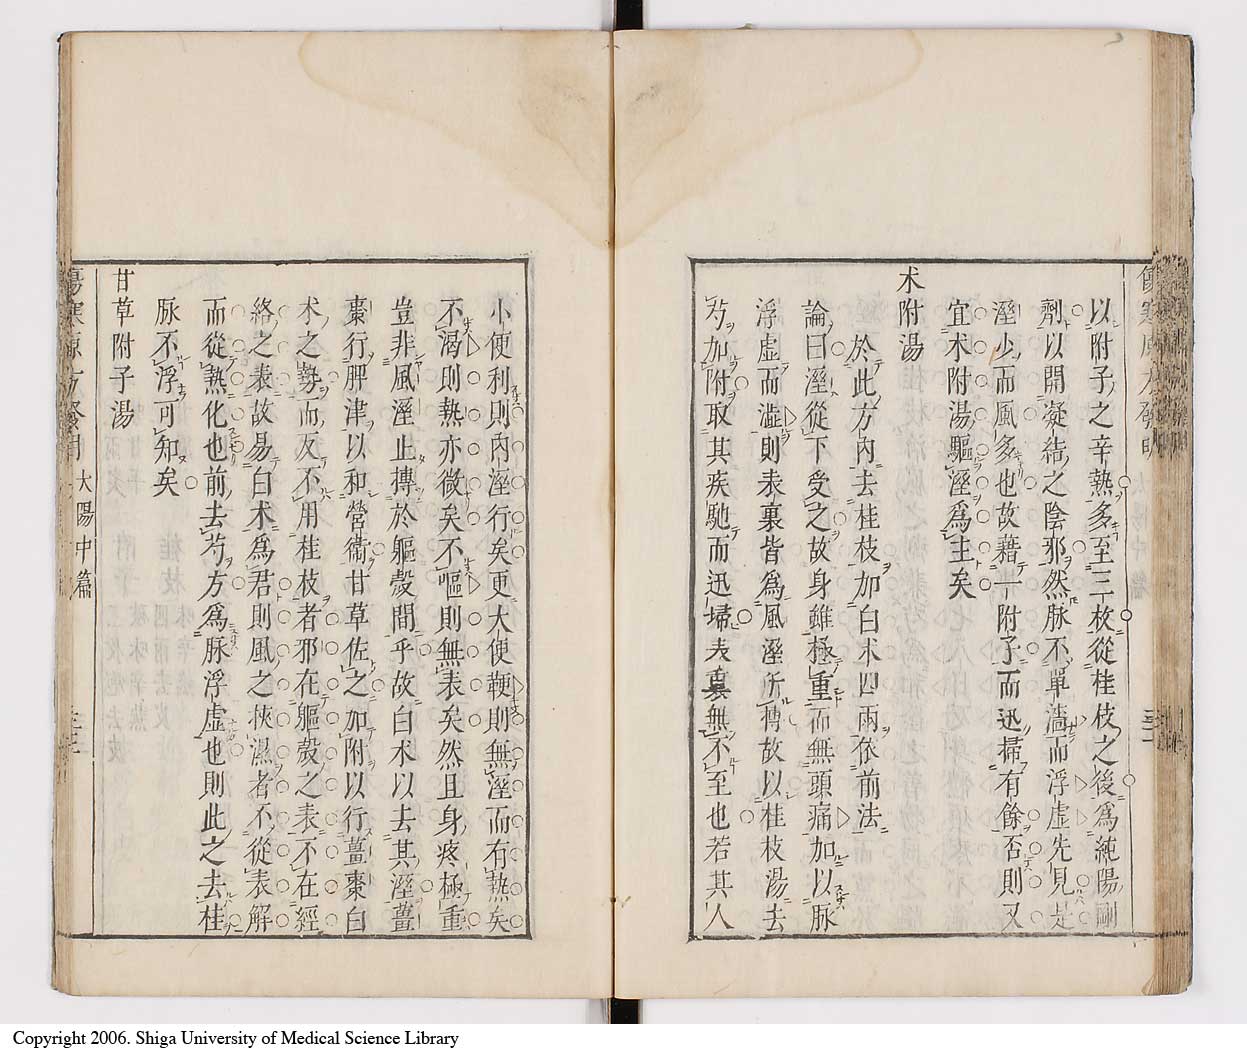 以附子之辛熱多至三枚從桂枝之後爲純陽剛
劑以開凝結之陰邪然脉不單濇而浮虛先見是
溼少而風多也故藉一附子而迅掃有餘否則又
宜术附湯驅溼爲主矣
术附湯
於此方內去桂枝加白术四兩依前法
論曰溼從下受之故身雖極重而無頭痛加以脉
浮虛而濇則表裏皆爲風溼所摶故以桂枝湯去
芍加附取其疾馳而迅掃表裏無不至也若其人
小便利則內溼行矣更大便鞕則無溼而有熱矣
不渴則熱亦微矣不嘔則無表矣然且身疼極重
豈非風溼止摶於軀殼間乎故白术以去其溼薑
棗行脾津以和營衞甘草佐之加附以行薑棗白
术之勢而反不用桂枝者邪在軀殼之表不在經
絡之表故易白术爲君則風之挾濕者不從表解
而從熱化也前去芍方爲脉浮虛也則此之去桂
脉不浮可知矣
甘草附子湯
太陽中篇
Copyright 2006. Shiga University of Medical Science Library